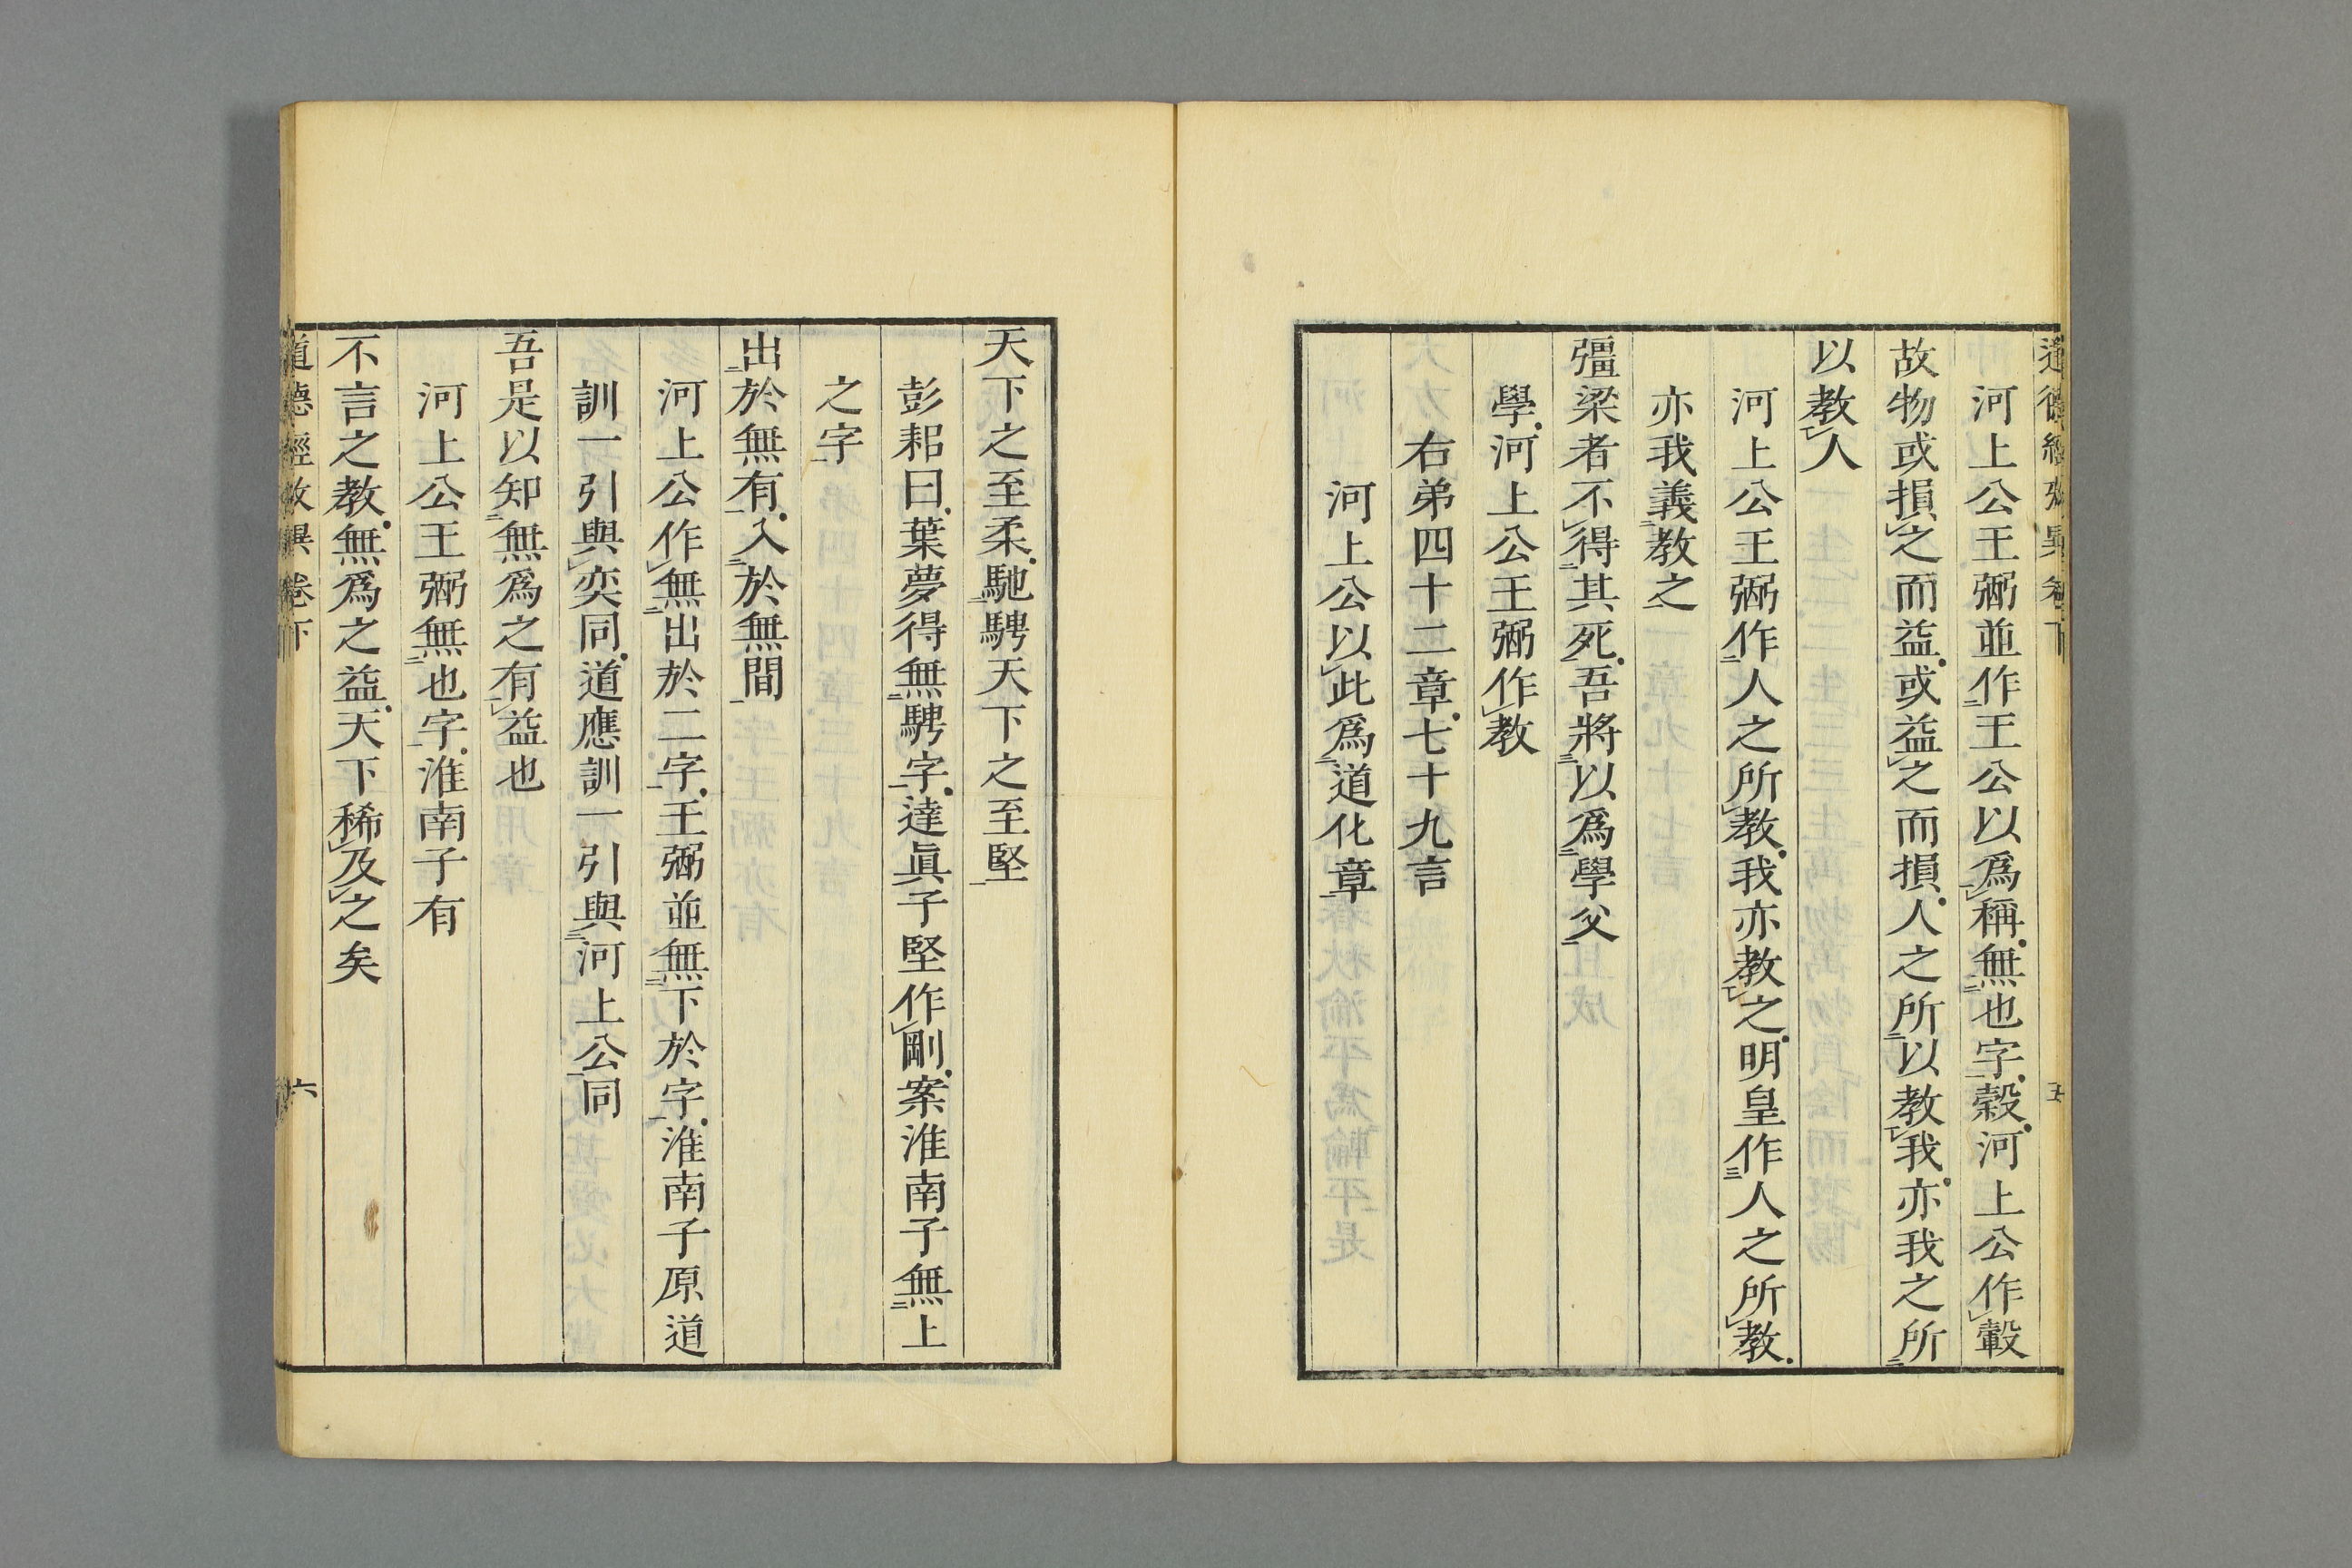 道德經攷異卷下 五
河上公王弼並作王公以爲稱無也字穀河上公作轂
故物或損之而益或益之而損人之所以教我亦我之所
以教人
河上公王弼作人之所教我亦教之明皇作人之所教
亦我義教之
彊梁者不得其死吾將以爲學父
學河上公王弼作教
右弟四十二章七十九言
河上公以此爲道化章
天下之至柔馳騁天下之至堅
彭耜曰葉夢得無騁字達眞子堅作剛案淮南子無上
之字
出於無有入於無間
河上公作無出於二字王弼並無下於字淮南子原道
訓一引與奕同道應訓一引與河上公同
吾是以知無爲之有益也
河上公王弼無也字淮南子有
不言之教無爲之益天下稀及之矣
道德經攷異卷下 六